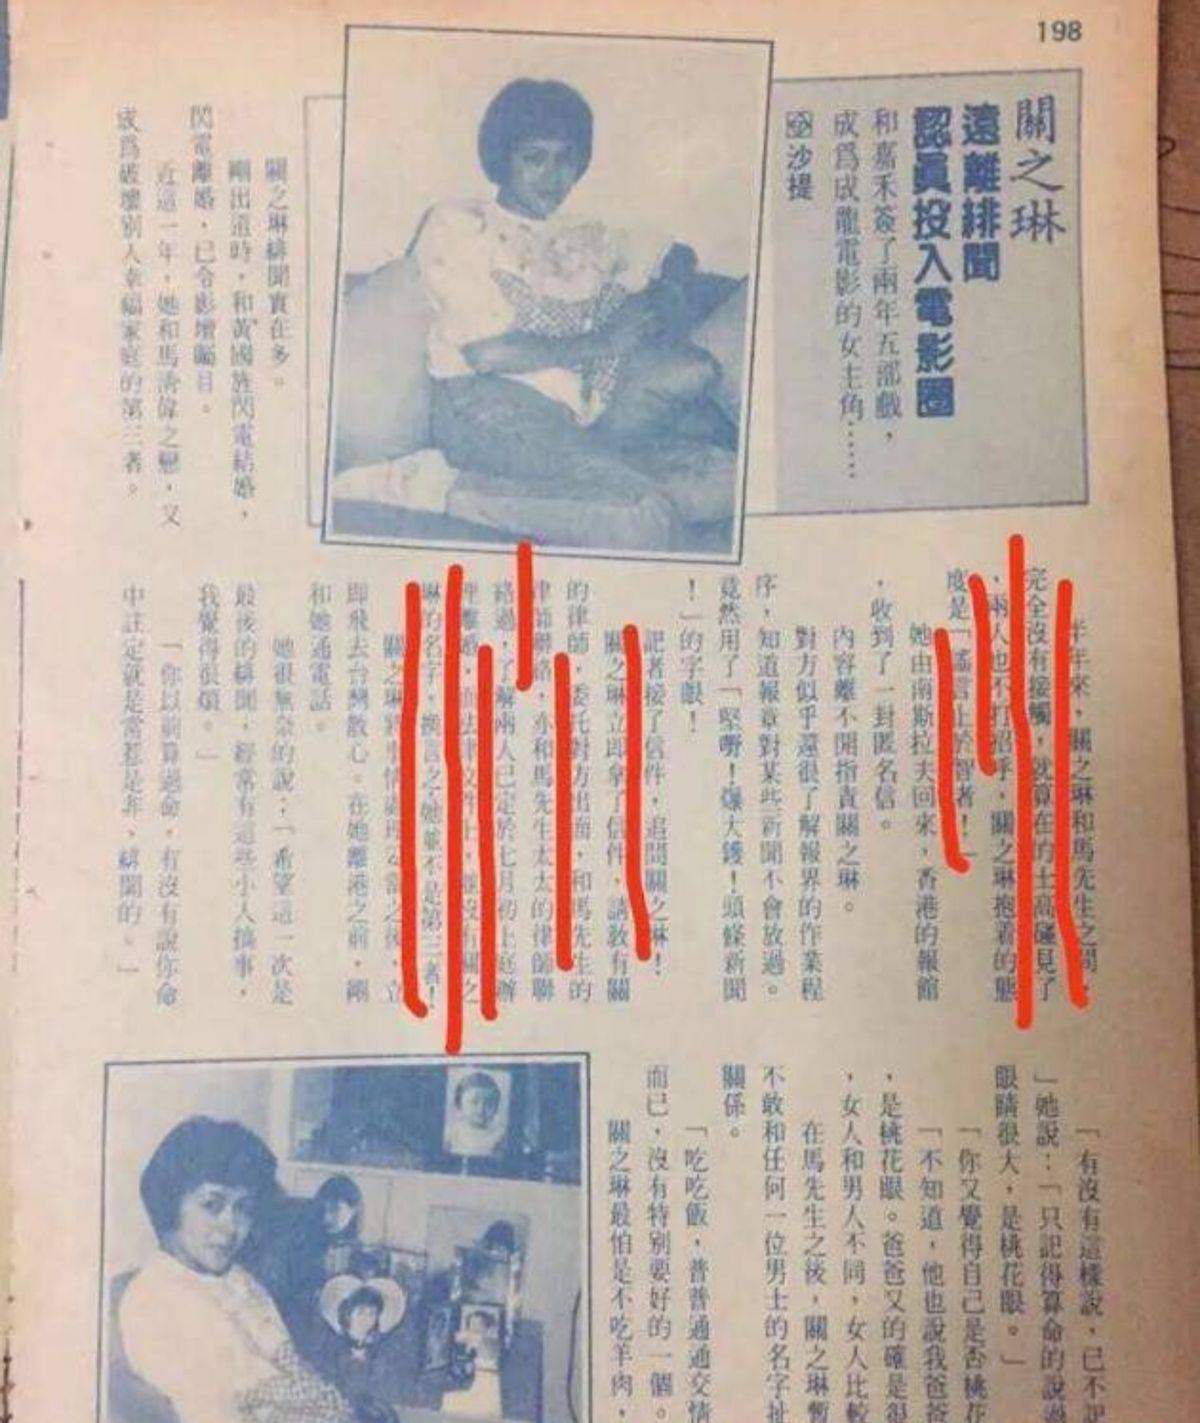 198
關之琳
遠離緋聞
認眞投入電影圈
和嘉禾簽了兩年五部戲，
成爲成龍電影的女主角……
沙提
關之琳緋聞實在多。
剛出道時，和黃國族閃電結婚，
閃電離婚，已令影壇矚目。
近這一年，她和馬清偉之戀，又
成爲破壞別人幸福家庭的第三者。
半年來，關之琳和馬先生之間，
完全沒有接觸，就算在的士高碰見了
，兩人也不打招乎，關之琳抱着的態
度是「謠言止於智者！」
她由南斯拉夫回來，香港的報館
，收到了一封匿名信。
內容離不開指責關之琳。
對方似乎還很了解報界的作業程
序，知道報章對某些新聞不會放過。
竟然用了「堅嘢！爆大鑊！頭條新聞
！」的字眼！
記者接了信件，追問關之琳！
關之琳立即拿了信件，請教有關
的律師，委托對方出面，和馬先生的
律師聯絡，亦和馬先生太太的律師聯
絡過，了解兩人已定於七月初上庭辦
理離婚，而法律文件上，並沒有關之
琳的名字，換言之她並不是第三者！
關之琳將事情處理妥當之後，立
即飛去台灣散心。在她離港之前，剛
和她通電話。
她很無奈的說：「希望這一次是
最後的緋聞，經常有這些小人搞事，
我覺得很煩。」
「你以前算過命，有沒有說你命
中註定就是當惹是非，緋聞的。」
「有沒有這樣說，已不記
」她說：「只記得算命的說過
眼睛很大，是桃花眼。」
「你又覺得自己是否桃花
「不知道，他也說我爸爸
，是桃花眼。爸爸又的確是很
，女人和男人不同，女人比較
在馬先生之後，關之琳暫
不敢和任何一位男士的名字扯
關係。
「吃吃飯，普普通通交情
而已，沒有特別要好的一個。
關之琳最怕是不吃羊肉，